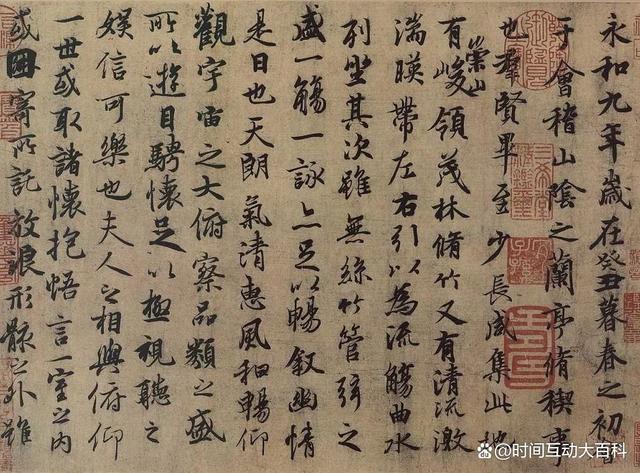 永和九年歲在癸丑暮春之初會
于會稽山陰之蘭亭脩稧事
也羣賢畢至少長咸集此地
有崇山峻領茂林脩竹又有清流激
湍暎帶左右引以為流觴曲水
列坐其次雖無絲竹管弦之
盛一觴一詠亦足以暢敘幽情
是日也天朗氣清惠風和暢仰
觀宇宙之大俯察品類之盛
所以遊目騁懷足以極視聽之
娛信可樂也夫人之相與俯仰
一世或取諸懷抱悟言一室之內
或因寄所託放浪形骸之外雖
@时间互动大百科